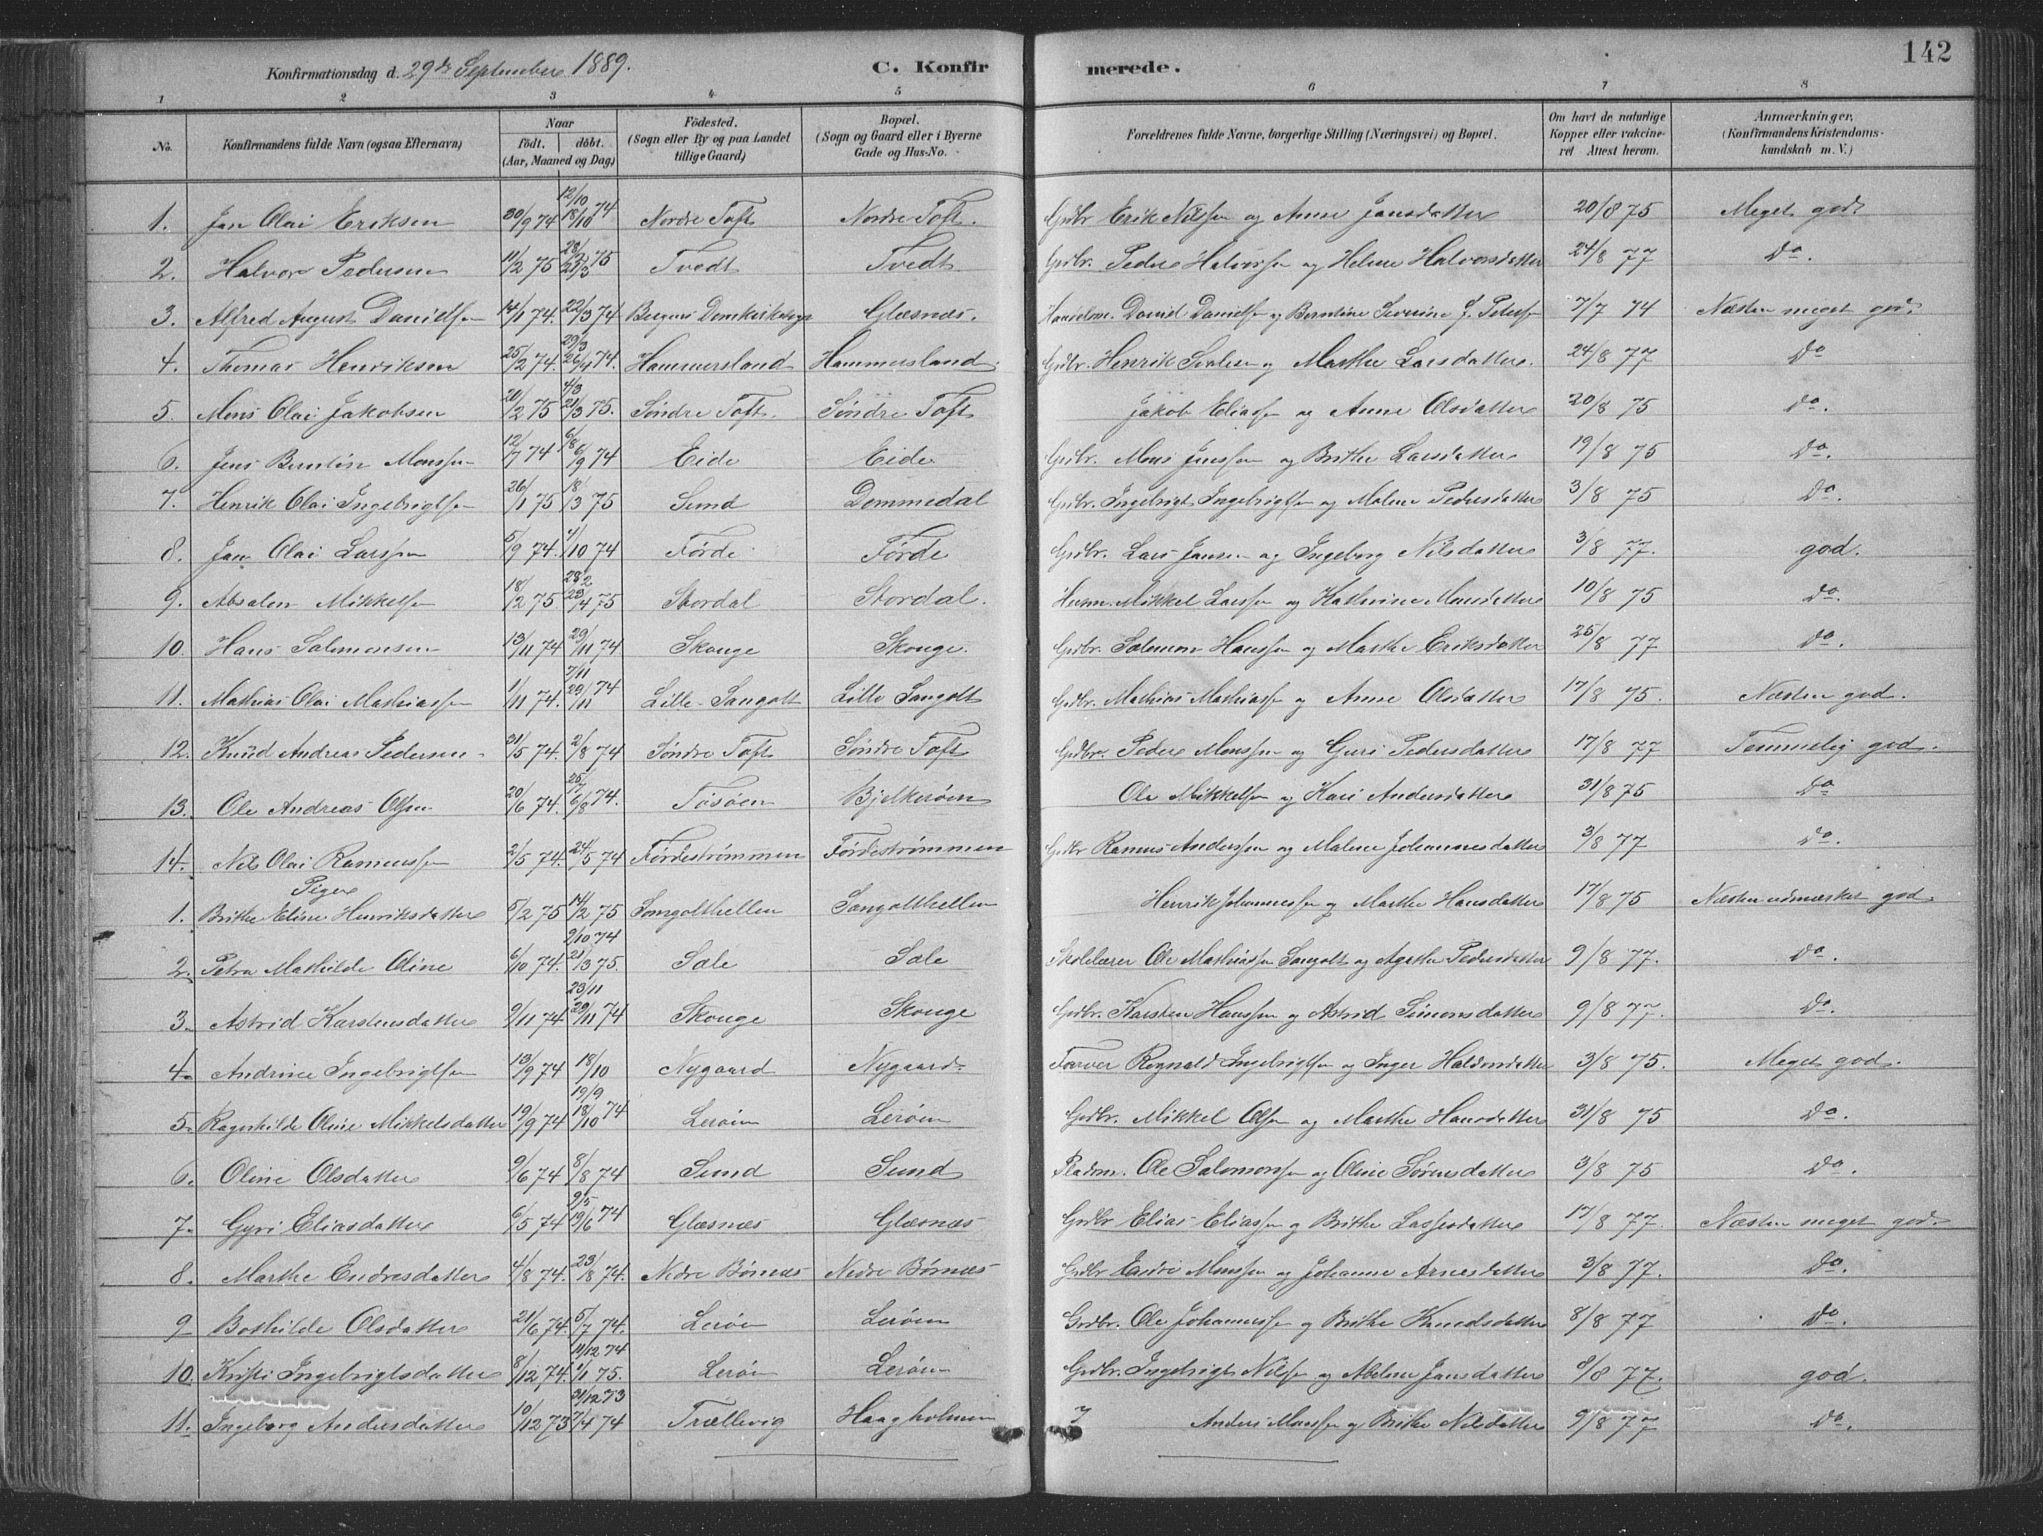 142
Konfirmationsdag d. 29de September 1889.
C. Konfirmerede.
1 2 3 4 5 6 7 8
No. Konfirmandens fulde Navn (ogsaa Efternavn) Naar födt. döbt. (Aar, Maaned og Dag) Födested. (Sogn eller By og paa Landet tillige Gaard) Bopæl. (Sogn og Gaard eller i Byerne Gade og Hus-No. Forældrenes fulde Navne, borgerlige Stilling (Næringsvei) og Bopæl. Om havt de naturlige Kopper eller vakcineret Attest herom. Anmærkninger, (Konfirmandens Kristendomskundskab m. V.)
1. Jan Olai Eriksen 30/9 74 12/10 18/10 74 Nordre Toft Nordre Toft. Grdbr Erik Nilsen og Anne Jansdatter 20/8 75 Meget god.
2. Halvor Pedersen 11/2 75 28/2 21/3 75 Tvedt Tvedt Grdbr. Peder Halvorsen og Helene Halvorsdatter 24/8 77 Do.
3. Alfred August Danielsen 14/1 74. 22/3 74 Bergens Domkirkesogn Glæsnæs. David Danielsen og Berntine Severine J. Petersen 7/7 74 Næsten meget god.
4. Thomas Henriksen 25/2 74. 29/3 26/4 74. Hammersland Hammersland. Grdbr. Henrik og Marthe Larsdatter. 24/8 77 Do
5. Mons Olai Jakobsen 20/2 75 4/3 21/3 75. Söndre Toft. Söndre Toft Jakob Eliassen og Anne Olsdatter 20/8 75 Do.
6. Jens Berntin Monssen 12/7 74 6/8 6/9 74 Eide Eide Grdbr. Mons Jenssen og Brithe Larsdatter 19/8 75 Do.
7. Henrik Olai Ingebrigtsen 26/1 75 18/3 75 Sund Dommedal Grdbr. Ingebrigt Ingebrigtsen og Malene Pedersdatter 3/8 75 Do.
8. Jan Olai Larssen 5/9 74. 4/10 74 Førde Førde Grdbr. Lars Jansen og Ingeborg Nilsdatter 3/8 77. god.
9. Absalon Mikkelsen 18/2 75. 28/2 23/4 75 Stordal Stordal. Husm. Mikkel Larssen og Kathrine Monsdatter 10/8 75 Do.
10. Hans Salomonsen 13/11 74 29/11 74 Skouge Skouge. Grdbr. Salomon Hanssen og Marthe Eriksdatter 25/8 77 Do.
11. Mathias Olai Mathiassen 1/11 74. 7/11 29/11 74 Lille-Sangolt Lille Sangolt Grdbr. Mathias Mathiassen og Anne Olsdatter 17/8 75. Næsten god.
12. Knud Andreas Pedersen 21/5 74. 2/8 74 Söndre Toft Söndre Toft Grdbr. Peder Monssen og Guri Pedersdatter 17/8 77 Temmelig god.
13. Ole Andreas Olsen 20/6 74. 26/7 6/8 74. Tösöen Bjelkeröen Ole Mikkelsen og Kari Andersdatter 31/8 75 Do
14. Nils Olai Rasmussen 2/5 74. 24/5 74 Førdestrømmen Førdestrømmen Grdbr Rasmus Anderssen og Malene Johannesdatter 3/8 77 Do.
Piger
1. Brithe Eline Henriksdatter 5/2 75 14/2 75 Sangolthellen Sangolthellen Henrik Johannessen og Marthe Hansdatter 17/8 75 Næsten udmærket god.
2. Petra Mathilde Oline 6/10 74. 9/10 74 21/3 75. Sæle Sæle Skolelærer Ole Mathiassen Sangolt og Agathe Pedersdatter 9/8 77. Do.
3. Astrid Karstensdatter 9/11 74 23/11 29/11 74 Skouge Skouge Grdbr. Karsten Hanssen og Astrid Simonsdatter 9/8 77. Do.
4. Andrine Ingebrigtsen 13/9 74 18/10 Nygaard Nygaard Farver Regnald Ingebrigtsen og Inger 3/8 75. Meget god.
5. Ragnhilde Oline Mikkelsdatter 19/9 74 19/9 18/10 74 Leröen Leröen Grdbr. Mikkel Olsen og Marthe Hansdatter 31/8 75 Do.
6. Oline Olsdatter 9/6 74 8/8 74 Sund Sund Pladsm. Ole Salomonsen og Oline Sørensdatter 3/8 75 Do.
7. Gyri Eliasdatter 6/5 74 9/5 19/6 74 Glæsnæs Glæsnæs Grdbr Elias Eliassen og Brithe Lassesdatter 17/8 77. Næsten meget god.
8. Marthe Endresdatter 4/8 74. 23/8 74. Nedre Børnæs Nedre Børnæs Grdbr Endre Monssen og Johanne Arnesdatter 3/8 77. Do.
9 Bothilde Olsdatter 21/6 74. 5/7 74. Leröen Leröen Grdbr. Ole Johannessen og Brithe Knudsdatter 8/8 77 Do.
10. Kristi Ingebrigtsdatter 8/12 74. 11/12 74 1/1 75. Leröen Leröen Grdbr. Ingebrigt Nilsen og Abelone Jansdatter 8/8 77. god.
11. Ingeborg Andersdatter 10/12 73 21/12 73 7/4 74 Trællevig Haagholmen Anders Monssen og Brithe Nilsdatter 9/8 77 Do.